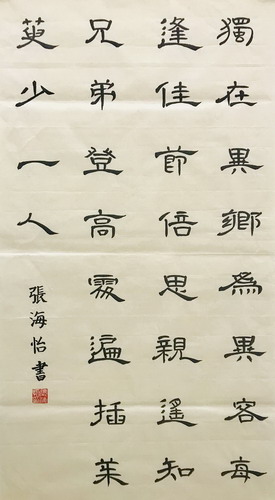 獨在異鄉為異客每
逢佳節倍思親遙知
兄弟登高處遍插茱
萸少一人
張海怡書